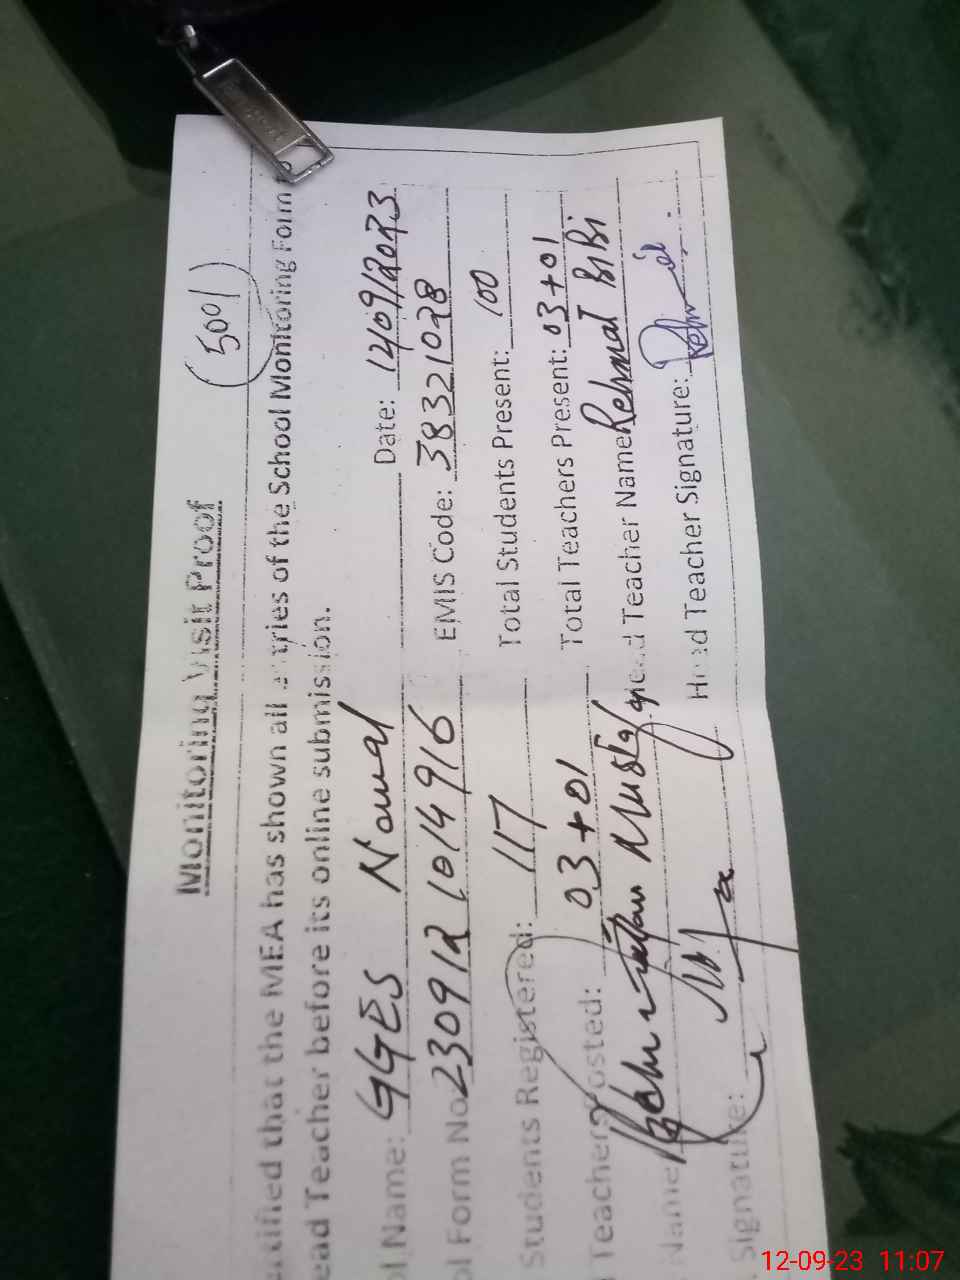 Monitoring Visit Proof
(5001)
that the MEA has shown all entries of the School Monitoring Form
ead Teacher before its online submission.
ol Name: GGES Nowal Date: 12/09/2023
ol Form No 230912 1014916 EMIS Code: 38321028
Students Registered: 117 Total Students Present: 100
Teachers Posted: 03+01 Total Teachers Present: 03+01
Name Head Teacher Name Rehmat BiBi
Signature: Head Teacher Signature:
12-09-23 11:07